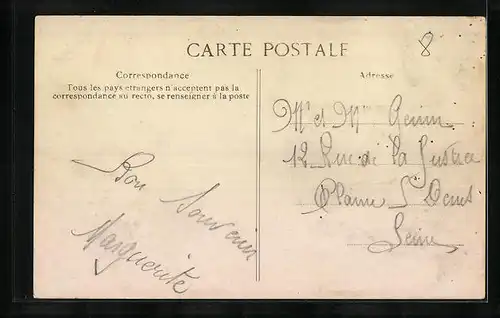 8
CARTE POSTALE
Correspondance
Tous les pays étrangers n'acceptent pas la
correspondance au recto, se renseigner à la poste
Bon Souvenir
Marguerite
Adresse
Mr et Mme
12 Rue de La Justice
Plaine St Denis
Seine